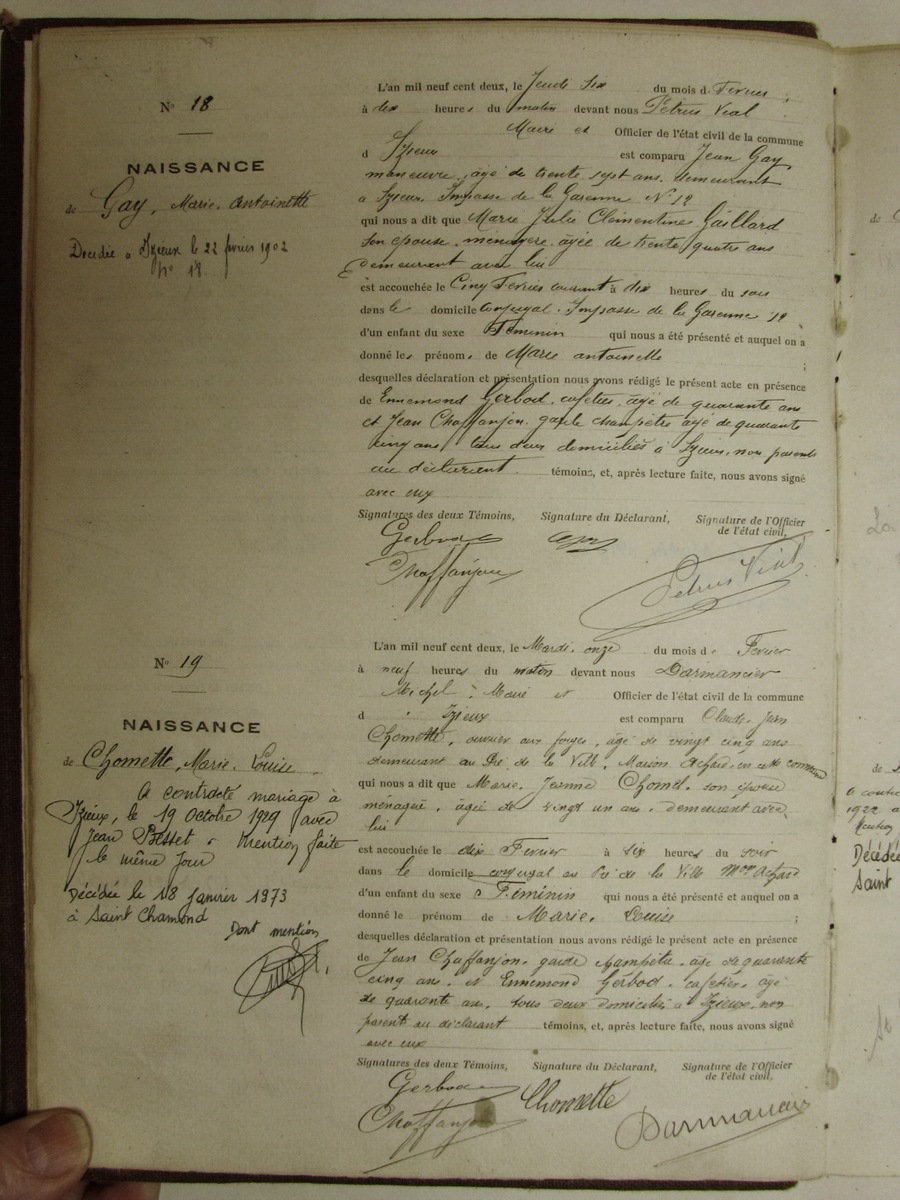 N° 18
NAISSANCE
de Gay, Marie. Antoinette
Décédée à Izieux le 22 février 1902
N° 18.
L'an mil neuf cent deux, le Jeudi Six du mois d. Fevrier ;
à dix heures du matin devant nous Pétrus Vial
Maire et Officier de l'état civil de la commune
d Izieux est comparu Jean Gay
manœuvre, âgé de trente sept ans. demeurant
à Izieux. Impasse de la Garenne N° 12
qui nous a dit que Marie Julie Clémentine Gaillard
son épouse. ménagère. âgée de trente quatre ans
Demeurant avec lui
est accouchée le Cinq Fevrier courant à dix heures du soir
dans le domicile conjugal. Impasse de la Garenne 12
d'un enfant du sexe Féminin qui nous a été présenté et auquel on a
donné les prénoms de Marie antoinette ;
desquelles déclaration et présentation nous avons rédigé le présent acte en présence
de Ennemond Gerbod. cafetier. âgé de quarante ans
et Jean Chaffanjon. garde champêtre âgé de quarante
cinq ans, tous deux domiciliés à Izieux, non parents
au déclarant témoins, et, après lecture faite, nous avons signé
avec eux
Signatures des deux Témoins, Signature du Déclarant, Signature de l'Officier
de l'état civil,
Gerbod Gay
Chaffanjon Pétrus Vial
N° 19
NAISSANCE
de Chomette, Marie. Louise.
A contracté mariage à
Izieux, le 19 Octobre 1929 avec
Jean Besset. Mention faite
le même jour
Décédée le 18 janvier 1973
à Saint Chamond
Dont mention
L'an mil neuf cent deux, le Mardi. onze du mois d. Fevrier
à neuf heures du matin devant nous Darmancier
Michel. Maire et Officier de l'état civil de la commune
d Izieux est comparu Claude. Jean
Chomette, ouvrier aux forges, âgé de vingt cinq ans
demeurant au Pré de la Ville, Maison Achard. en cette commune
qui nous a dit que Marie. Jeanne Chomel. son épouse
ménagère, âgée de vingt un ans. demeurant avec
lui
est accouchée le dix Fevrier à six heures du soir
dans le domicile conjugal au Pré de la Ville Mon Achard
d'un enfant du sexe Féminin qui nous a été présenté et auquel on a
donné le prénom de Marie. Louise ;
desquelles déclaration et présentation nous avons rédigé le présent acte en présence
de Jean Chaffanjon. garde champêtre. âgé de quarante
cinq ans. et Ennemond Gerbod. cafetier. âgé
de quarante ans. tous deux domiciliés à Izieux. non
parent au déclarant témoins, et, après lecture faite, nous avons signé
avec eux
Signatures des deux Témoins, Signature du Déclarant, Signature de l'Officier
de l'état civil,
Gerbod Chomette
Chaffanjon Darmancier
1922
Décédée
Saint